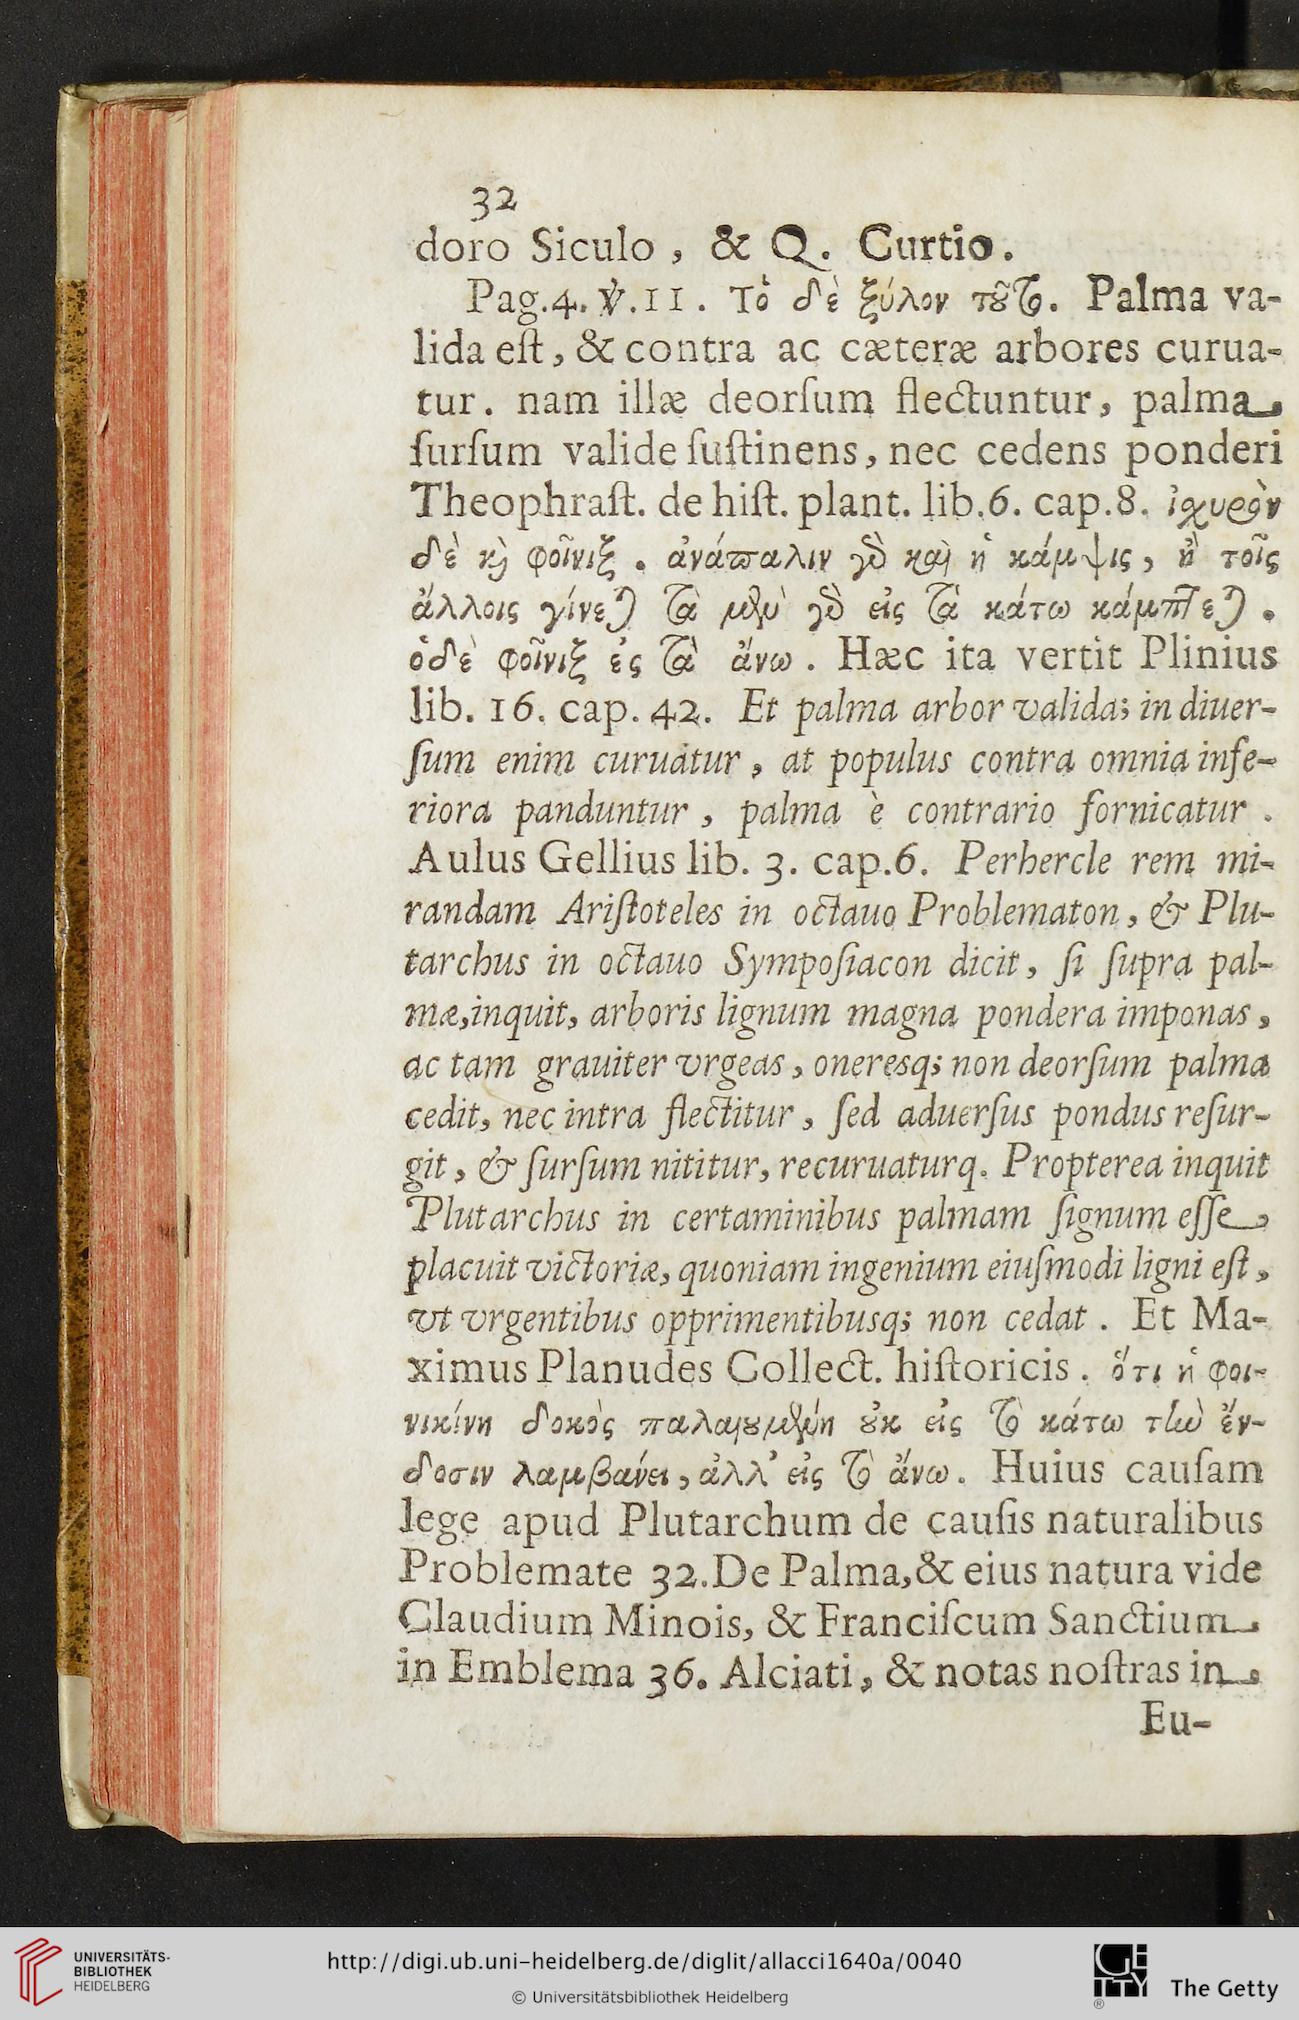 32
doro Siculo, & Q. Curtio.
Pag.4. ℣.11. Τὸ δὲ ξύλον τȣ̃το. Palma va-
lida eſt, & contra ac cæteræ arbores curua-
tur. nam illæ deorſum flectuntur, palma
ſurſum valide ſuſtinens, nec cedens ponderi
Theophraſt. de hiſt. plant. lib.6. cap.8. ἰσχυρὸν
δὲ κὴ φοῖνιξ. ἀνάπαλιν γὸ καὶ ἡ κάμψις, ἢ τοῖς
ἄλλοις γίνεται τὰ μὲν γὸ εἰς τὰ κάτω κάμπτεται.
ὁδὲ φοῖνιξ ἐς τὰ ἄνω. Hæc ita vertit Plinius
lib. 16. cap. 42. Et palma arbor valida; in diuer-
ſum enim curuatur, at populus contra omnia infe-
riora panduntur, palma è contrario fornicatur.
Aulus Gellius lib. 3. cap.6. Perhercle rem mi-
randam Ariſtoteles in octauo Problematon, & Plu-
tarchus in octauo Sympoſiacon dicit, ſi ſupra pal-
mæ, inquit, arboris lignum magna pondera imponas,
ac tam grauiter vrgeas, oneresq; non deorſum palma
cedit, nec intra flectitur, ſed aduerſus pondus reſur-
git, & ſurſum nititur, recuruaturq. Propterea inquit
Plutarchus in certaminibus palmam ſignum eſſe
placuit victoriæ, quoniam ingenium eiuſmodi ligni eſt,
vt vrgentibus opprimentibusq; non cedat. Et Ma-
ximus Planudes Collect. hiſtoricis. ὅτι ἡ φοι-
νικίνη δοκὸς παλαιȣμένη ȣκ εἰς τὸ κάτω τὴν ἔν-
δοσιν λαμβάνει, ἀλλ' εἰς τὸ ἄνω. Huius cauſam
lege apud Plutarchum de cauſis naturalibus
Problemate 32. De Palma, & eius natura vide
Claudium Minois, & Franciſcum Sanctium
in Emblema 36. Alciati, & notas noſtras in
Eu-
UNIVERSITÄTS-
BIBLIOTHEK
HEIDELBERG
http://digi.ub.uni-heidelberg.de/diglit/allacci1640a/0040
© Universitätsbibliothek Heidelberg
GETTY
®
The Getty